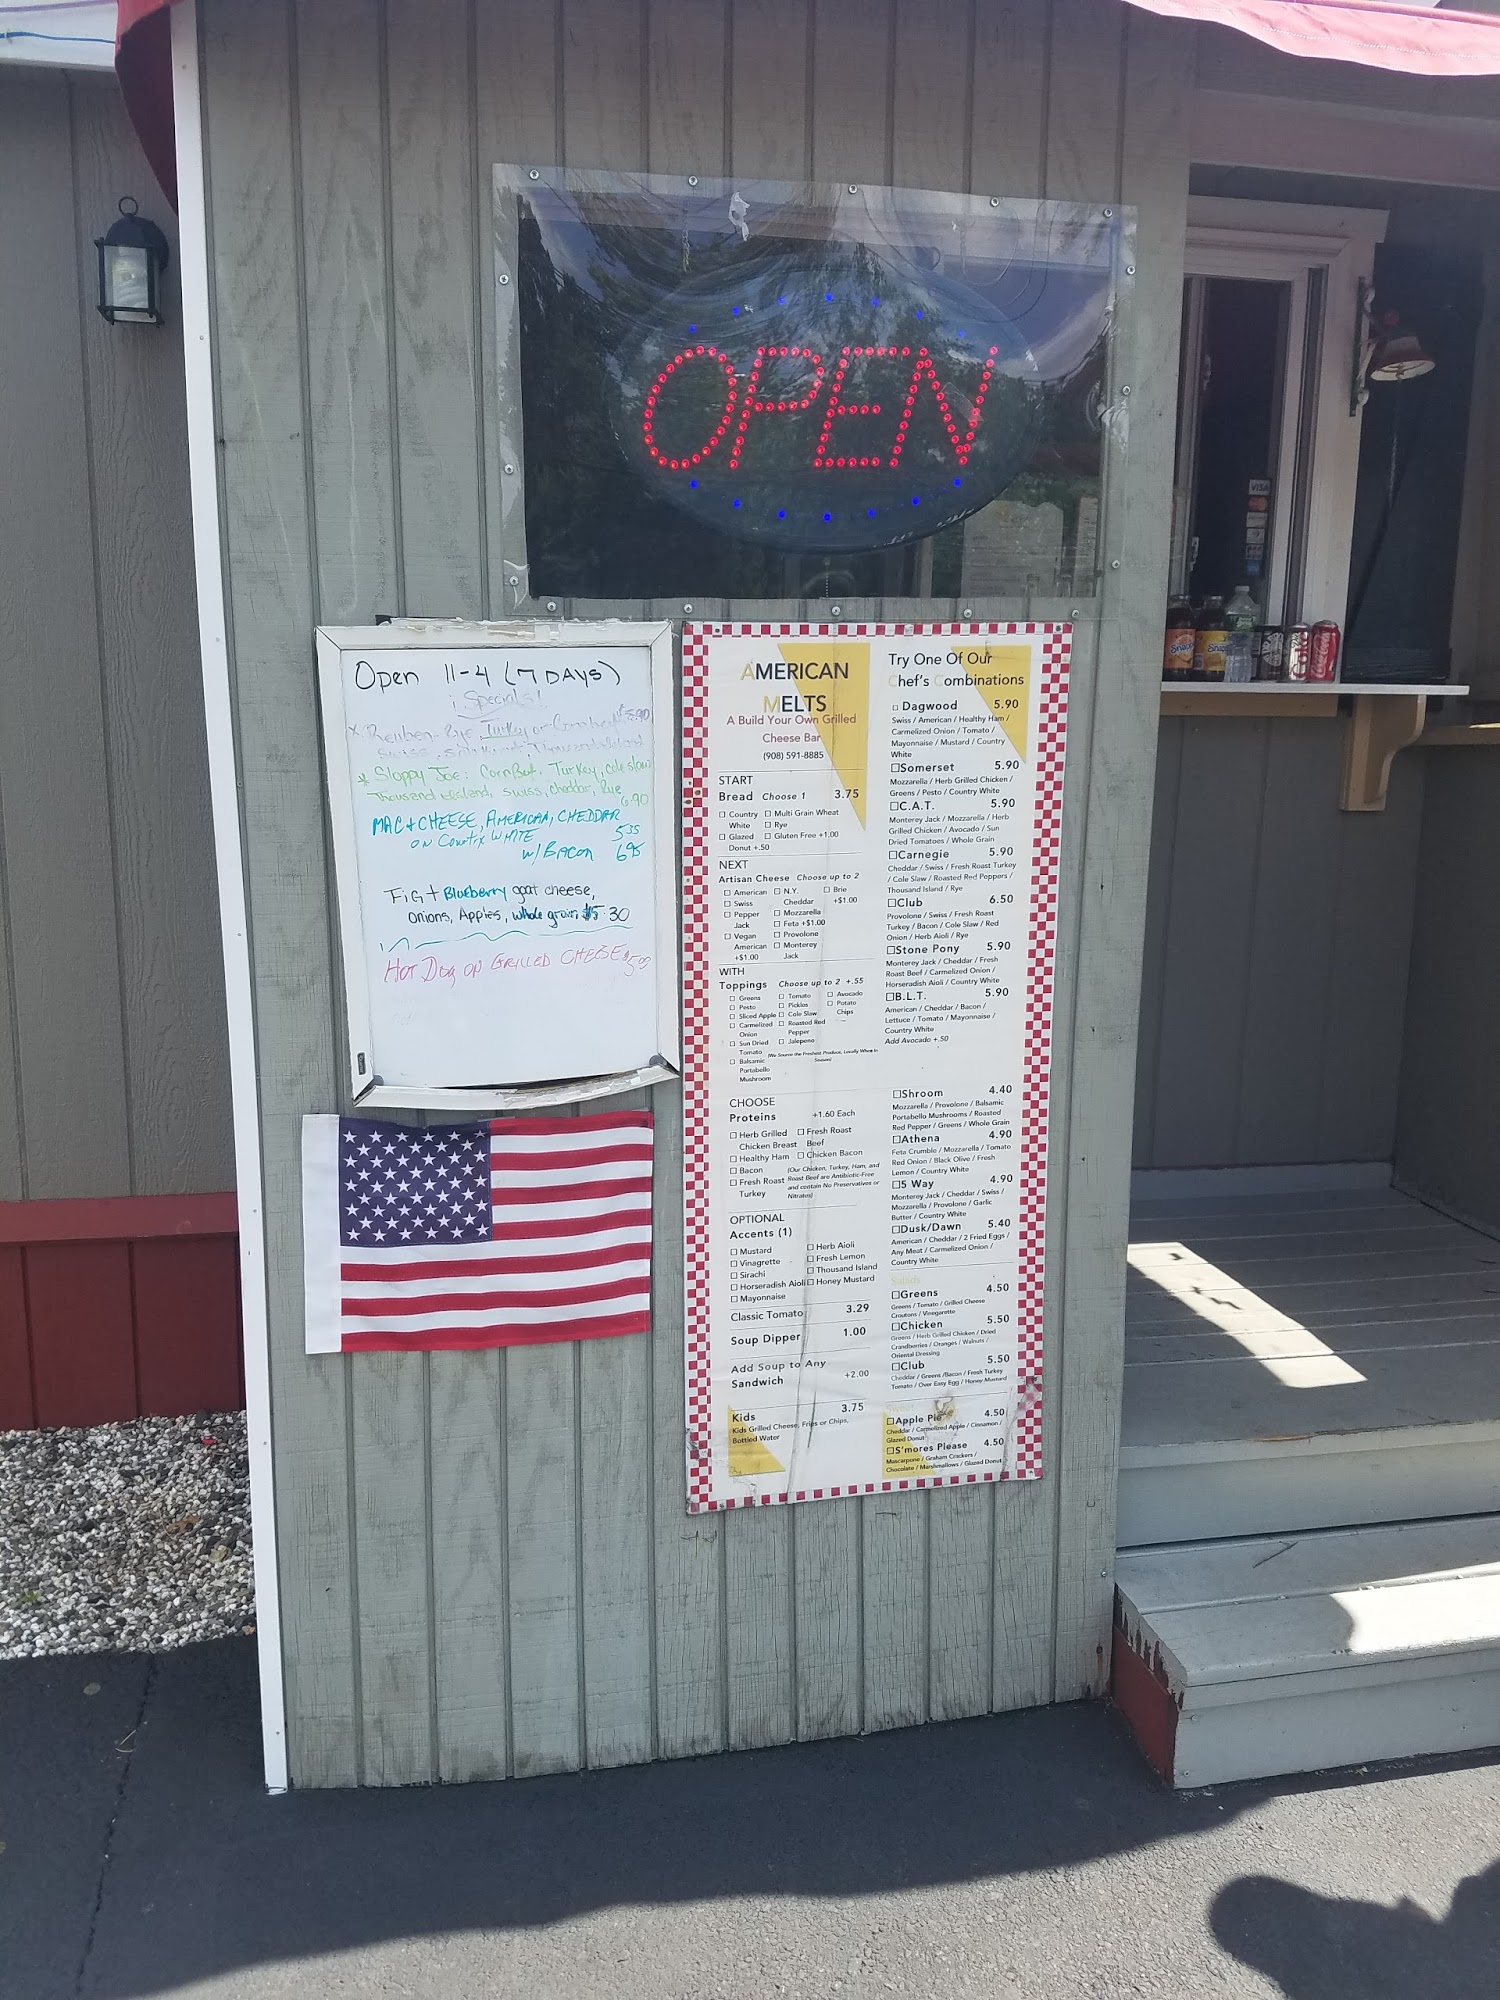 OPEN
Open 11-4 (7 DAYS)
¡ Specials!
Reuben- Rye, Turkey or Corn $5.90
Swiss, Thousand Island
* Sloppy Joe: Turkey, cole slaw
Thousand island, swiss, cheddar, Rye
6.90
MAC + CHEESE, AMERICAN, CHEDDAR
ON Country WHITE 5.35
w/ BACON 6.95
FIG + Blueberry goat cheese,
onions, Apples, whole grain $5.30
HOT DOG ON GRILLED CHEESE
AMERICAN
MELTS
A Build Your Own Grilled
Cheese Bar
(908) 591-8885
START
Bread Choose 1 3.75
Country White
Glazed Donut +.50
Multi Grain Wheat
Rye
Gluten Free +1.00
NEXT
Artisan Cheese Choose up to 2
American
Swiss
Pepper
Jack
Vegan
American
+$1.00
N.Y.
Cheddar
Mozzarella
Feta +$1.00
Provolone
Monterey
Jack
Brie
+$1.00
WITH
Toppings Choose up to 2 +.55
Greens
Pesto
Sliced Apple
Carmelized
Onion
Sun Dried
Tomato
Balsamic
Portabello
Mushroom
Tomato
Pickles
Cole Slaw
Roasted Red
Pepper
Jalepeno
Avocado
Potato
Chips
(We Source the Freshest Produce, Locally When In
Season)
CHOOSE
Proteins +1.60 Each
Herb Grilled
Chicken Breast
Healthy Ham
Bacon
Fresh Roast
Turkey
Fresh Roast
Beef
Chicken Bacon
(Our Chicken, Turkey, Ham, and
Roast Beef are Antibiotic-Free
and contain No Preservatives or
Nitrates)
OPTIONAL
Accents (1)
Mustard
Vinagrette
Sirachi
Horseradish Aioli
Mayonnaise
Herb Aioli
Fresh Lemon
Thousand Island
Honey Mustard
Classic Tomato 3.29
Soup Dipper 1.00
Add Soup to Any
Sandwich +2.00
Kids 3.75
Kids Grilled Cheese, Frips or Chips,
Bottled Water
Try One Of Our
Chef's Combinations
Dagwood 5.90
Swiss / American / Healthy Ham /
Carmelized Onion / Tomato /
Mayonnaise / Mustard / Country
White
Somerset 5.90
Mozzarella / Herb Grilled Chicken /
Greens / Pesto / Country White
C.A.T. 5.90
Monterey Jack / Mozzarella / Herb
Grilled Chicken / Avocado / Sun
Dried Tomatoes / Whole Grain
Carnegie 5.90
Cheddar / Swiss / Fresh Roast Turkey
/ Cole Slaw / Roasted Red Peppers /
Thousand Island / Rye
Club 6.50
Provolone / Swiss / Fresh Roast
Turkey / Bacon / Cole Slaw / Red
Onion / Herb Aioli / Rye
Stone Pony 5.90
Monterey Jack / Cheddar / Fresh
Roast Beef / Carmelized Onion /
Horseradish Aioli / Country White
B.L.T. 5.90
American / Cheddar / Bacon /
Lettuce / Tomato / Mayonnaise /
Country White
Add Avocado +.50
Shroom 4.40
Mozzarella / Provolone / Balsamic
Portabello Mushrooms / Roasted
Red Pepper / Greens / Whole Grain
Athena 4.90
Feta Crumble / Mozzarella / Tomato
Red Onion / Black Olive / Fresh
Lemon / Country White
5 Way 4.90
Monterey Jack / Cheddar / Swiss /
Mozzarella / Provolone / Garlic
Butter / Country White
Dusk/Dawn 5.40
American / Cheddar / 2 Fried Eggs /
Any Meat / Carmelized Onion /
Country White
Salads
Greens 4.50
Greens / Tomato / Grilled Cheese
Croutons / Vinegarette
Chicken 5.50
Greens / Herb Grilled Chicken / Dried
Crandberries / Oranges / Walnuts /
Oriental Dressing
Club 5.50
Cheddar / Greens / Bacon / Fresh Turkey
Tomato / Over Easy Egg / Honey Mustard
Sweet
Apple Pie 4.50
Cheddar / Carmelized Apple / Cinnamon /
Glazed Donut
S'mores Please 4.50
Mascarpone / Graham Crackers /
Chocolate / Marshmallows / Glazed Donut
VISA
Snapple
Snapple
Coke
Coca-Cola